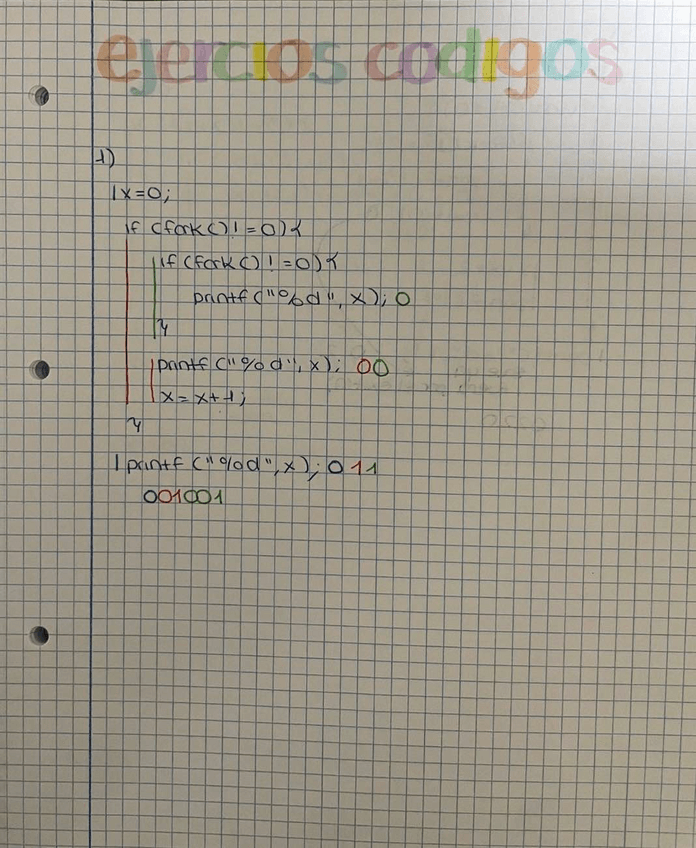 ejercios codigos
1)
x=0;
if (fork()!=0){
if (fork()!=0){
printf("%d", x); 0
}
printf("%d", x); 00
x=x+1;
}
printf("%d", x); 011
001001